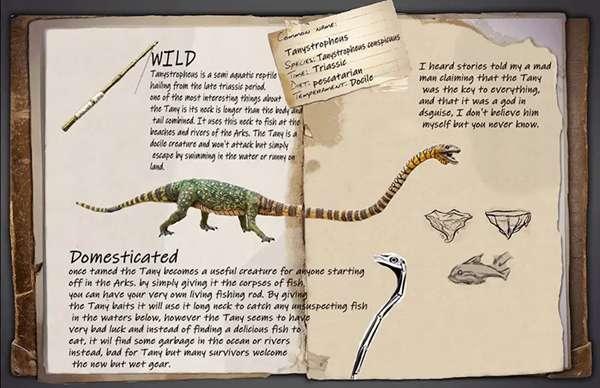 WILD
Tanystropheus is a semi aquatic reptile
hailing from the late triasic period.
one of the most interesting things about
the Tany is its neck is longer than the body and
tail combined. It uses this neck to fish at the
beaches and rivers of the Arks. The Tany is a
docile creature and won't attack but simply
escape by swimming in the water or runny on
land.
Common name:
Tanystropheus
Species: Tanystropheus conspicuus
Time: Triassic
Diet: pescatarian
Temperament: Docile
I heard stories told my a mad
man claiming that the Tany
was the key to everything,
and that it was a god in
dsguise, I don't believe him
myself but you never know.
Domesticated
once tamed the Tany becomes a useful creature for anyone starting
off in the Arks. by simply giving it the corpses of fish,
you can have your very own living fishing rod. By giving
the Tany baits it will use it long neck to catch any unsuspecting fish
in the waters below, however the Tany seems to have
very bad luck and instead of finding a delicious fish to
eat, it wil find some garbage in the ocean or rivers
instead, bad for Tany but many survivors welcome
the new but wet gear.